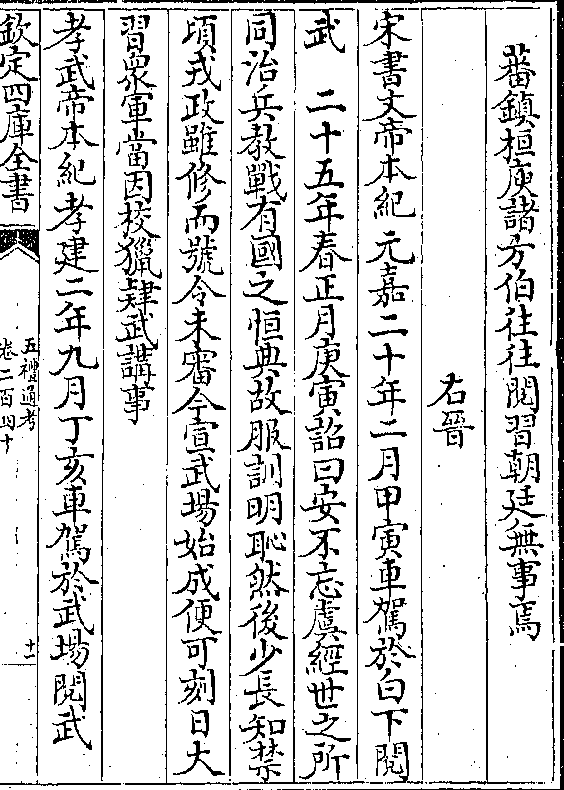 蕃鎮桓庾諸方伯往往閱習朝廷無事焉
右晉
宋書文帝本紀元嘉二十年二月甲寅車駕於白下閱
武 二十五年春正月庚寅詔曰安不忘虞經世之所
同治兵教戰有國之恒典故服訓明恥然後少長知禁
頃戎政雖修而號令未審今宣武場始成便可刻日大
習衆軍當因校獵肄武講事
孝武帝本紀孝建二年九月丁亥車駕於武場閱武
欽定四庫全書
五禮通考
卷二百四十
十一